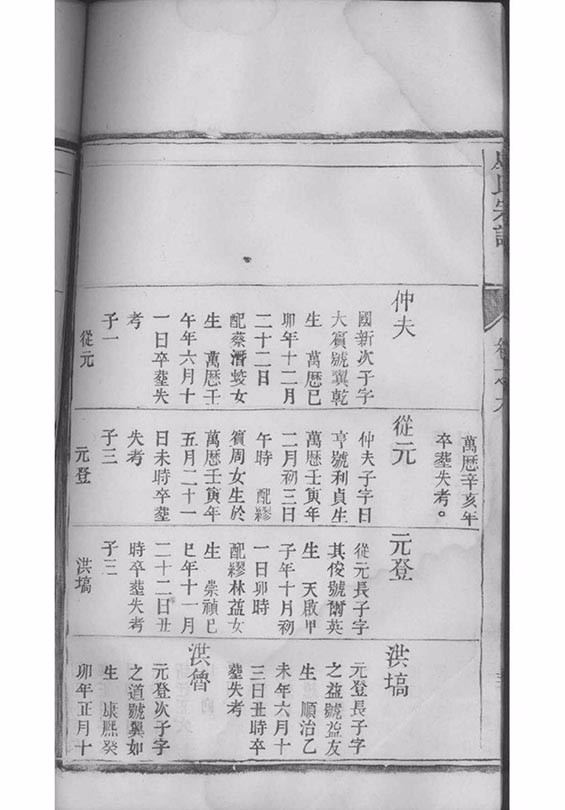 氏宗譜
卷之九
萬曆辛亥年
卒塟失考。
仲夫
國新次子字
大賓號冀乾
生 萬曆己
卯年十二月
二十二日
配蔡潛蛟女
生 萬曆壬
午年六月十
一日卒塟失
考
子一
從元
從元
仲夫子字曰
亨號利貞生
萬曆壬寅年
二月初三日
午時 配繆
賓周女生於
萬曆壬寅年
五月二十一
日未時卒塟
失考
子三
元登
元登
從元長子字
其俊號爾英
生 天啟甲
子年十月初
一日卯時
配繆林益女
生 崇禎己
巳年十一月
二十二日丑
時卒塟失考
子三
洪塙
洪塙
元登長子字
之益號益友
生 順治乙
未年六月十
三日丑時卒
塟失考
洪僧
元登次子字
之道號翼如
生 康熙癸
卯年正月十